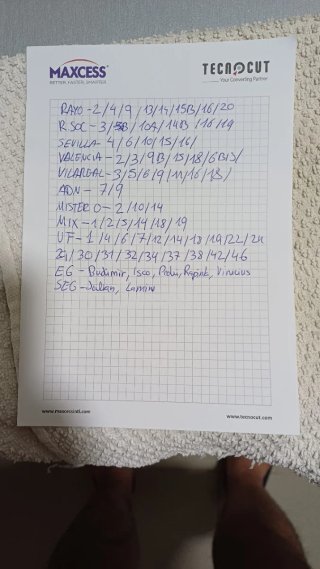 MAXCESS
BETTER. FASTER. SMARTER.
TECNOCUT
Your Converting Partner
RAYO - 2/4/9/13/14/15B/16/20
R. SOC - 3/5B/10A/14B/16/19
SEVILLA - 4/6/10/15/16/
VALENCIA - 2/3/9B/15/18/6BIS/
VILAREAL - 3/5/6/9/11/16/18/
ADN - 7/9
MISTER O - 2/10/14
MIX - 1/2/5/14/18/19
UF - 1/4/6/7/12/14/18/19/22/24
29/30/31/32/34/37/38/42/46
EG - Budimir, Isco, Pedri, Rapinha, Vinicius
SEG - Julian, Lamine
www.maxcessintl.com
www.tecnocut.com